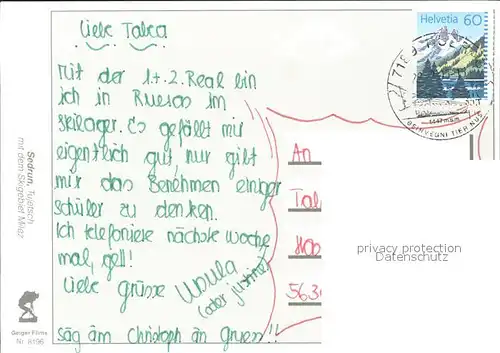 Liebe Talea
Mit der 1.+2. Real bin
ich in Rueras im
Skilager. Es gefällt mir
eigentlich gut, nur gibt
mir das Benehmen einiger
Schüler zu denken.
Ich telefoniere nächste Woche
mal, gell!
Liebe Grüsse Ursula
(oder
säg äm Christoph än Gruess!!
An
Tal
563
privacy protection
Datenschutz
Helvetia 60
Sedrun, Tujetsch
mit dem Skigebiet Milez
Geiger Films
Nr. 8196